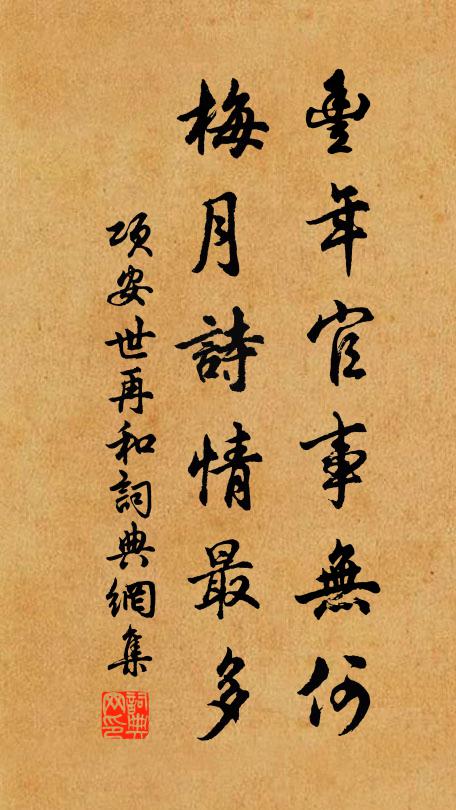 豐年官事無何
梅月詩情最多
項安世再和詞典網集
詞典网印